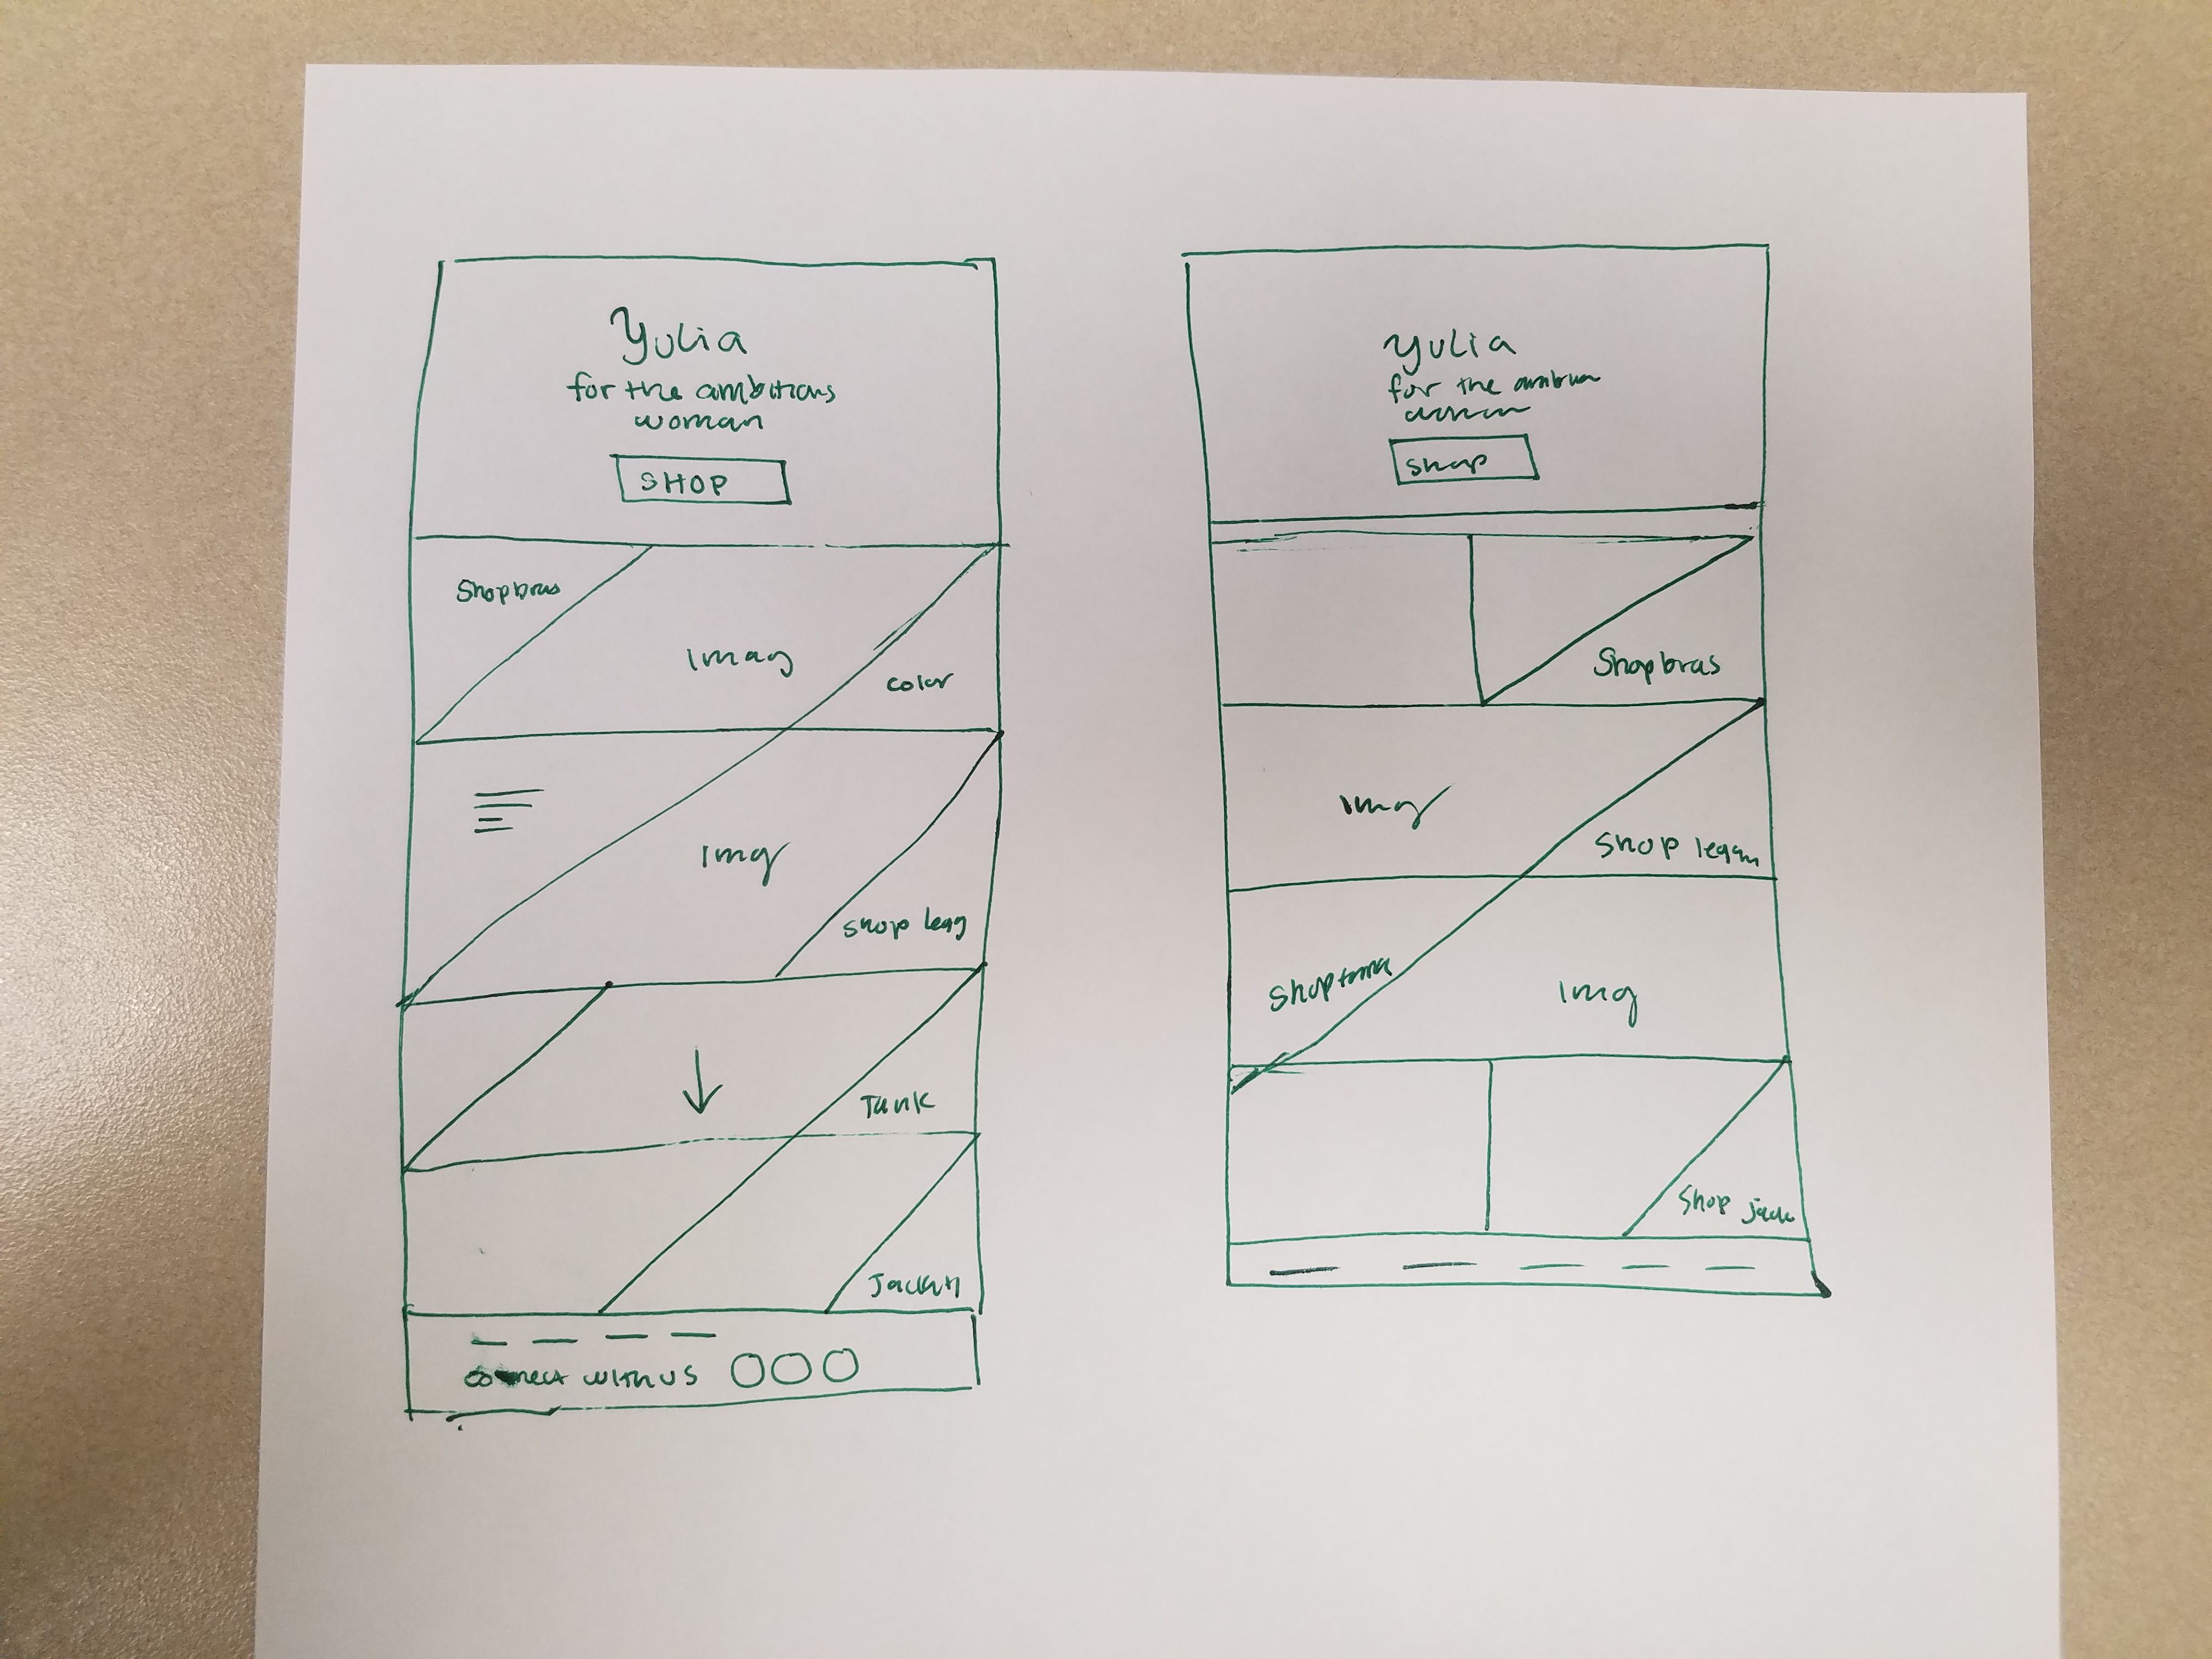 Yulia
for the ambitious
woman
SHOP
Shop bras
Imag
color
Img
Shop legg
Tank
Jacket
connect with us
Yulia
for the
Shop
Shop bras
Img
Shop legg
Shop
Img
Shop jack